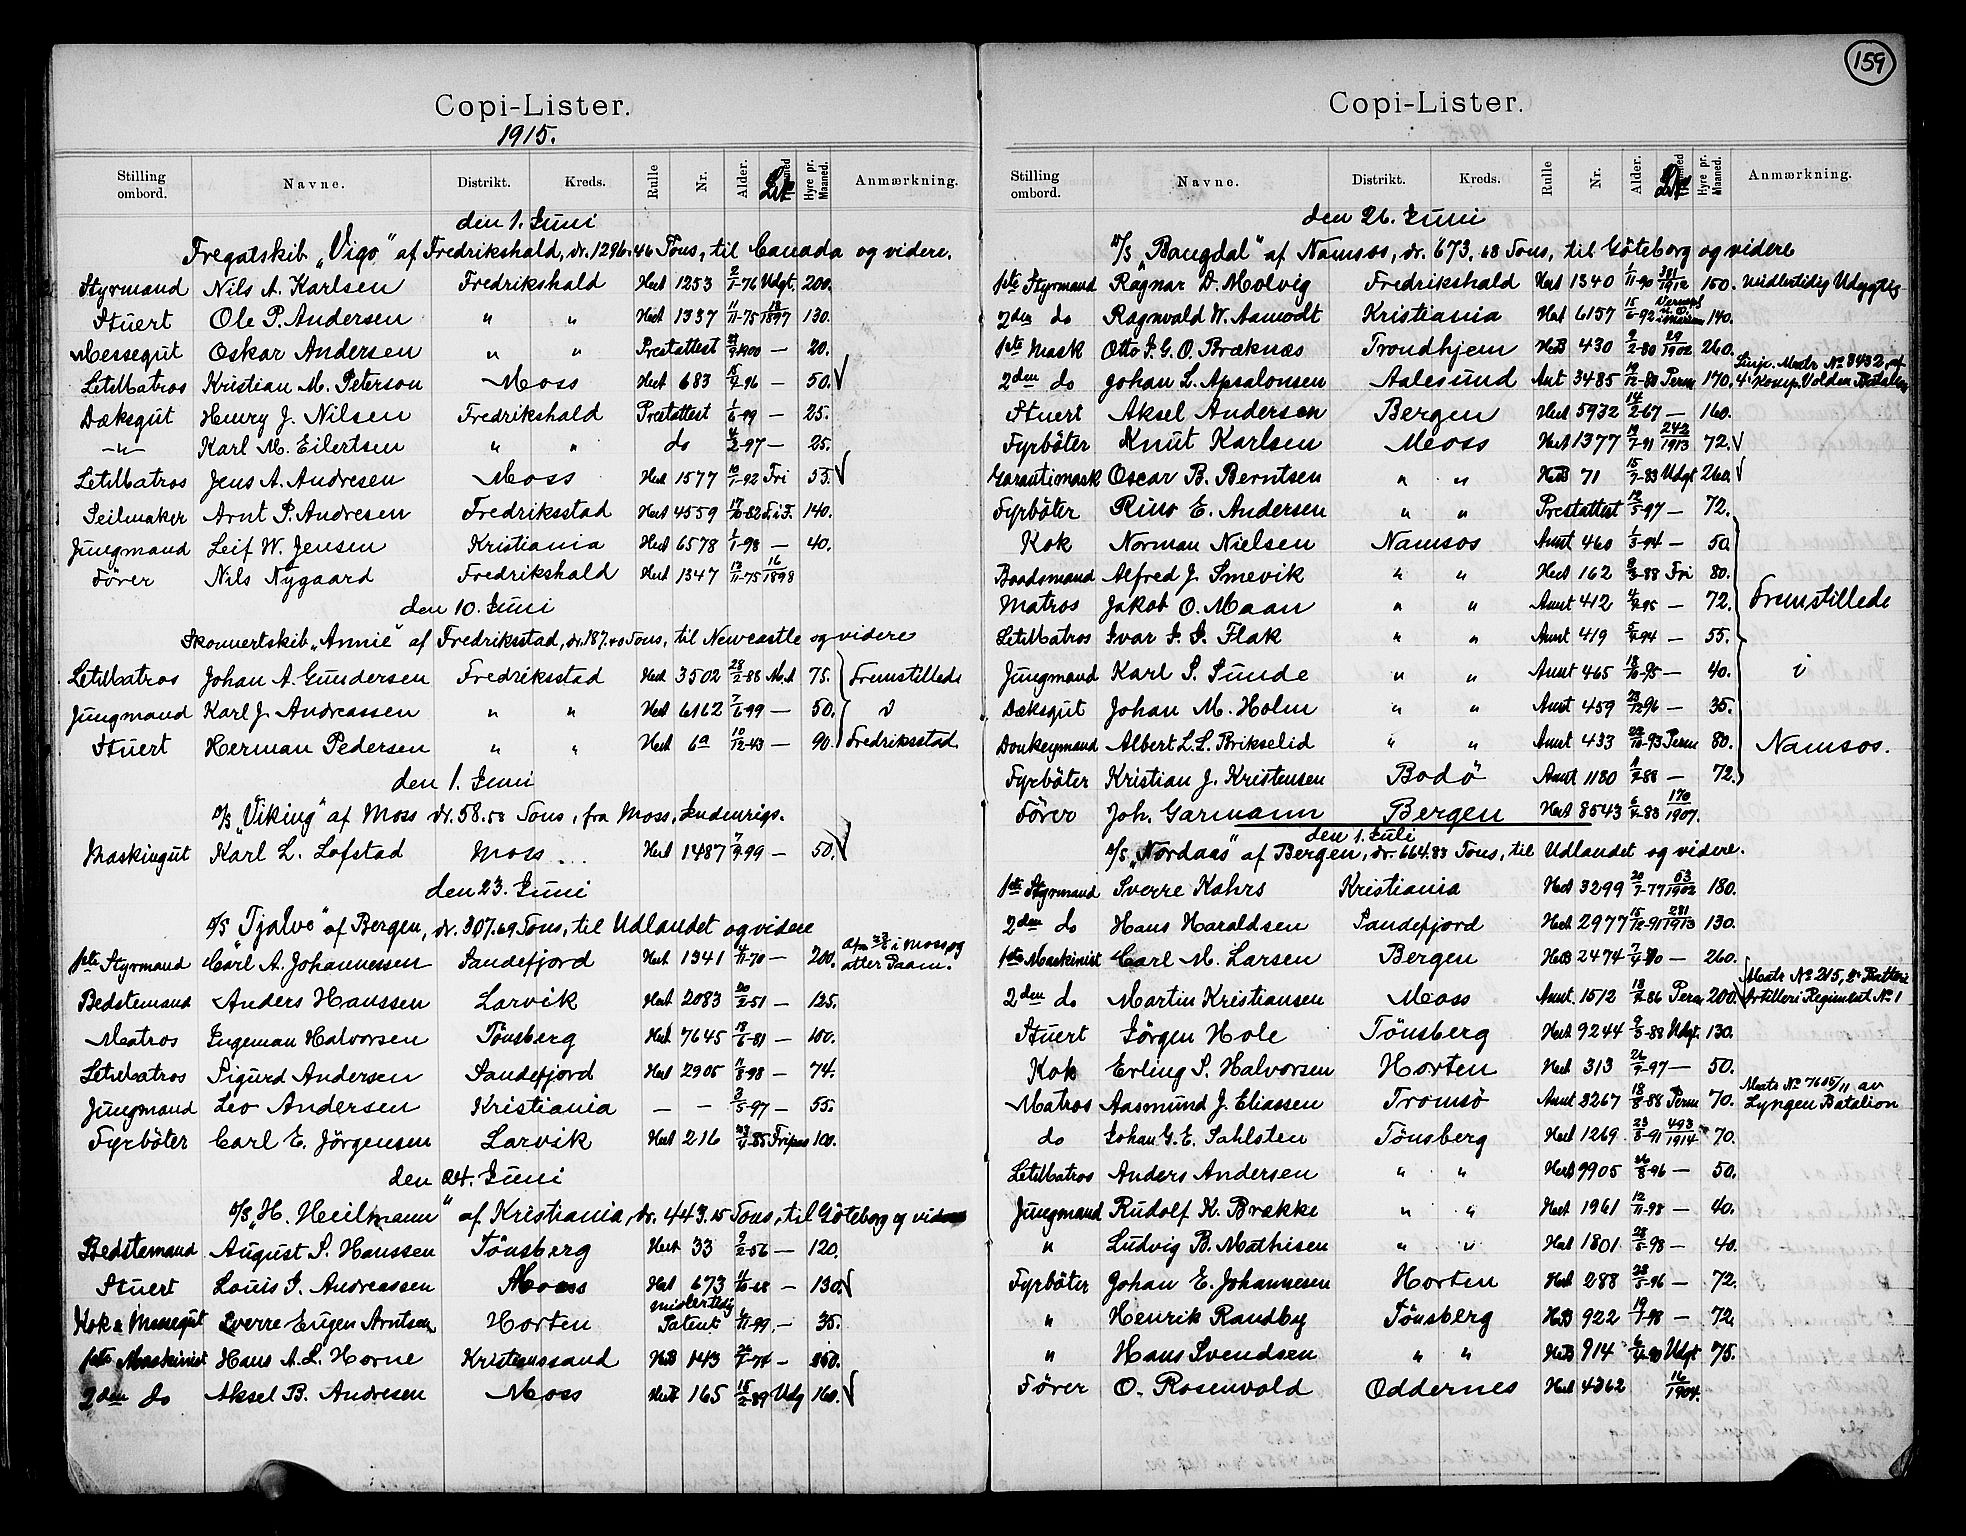 159
Copi-Lister.
1915.
Stilling ombord. Navne. Distrikt. Kreds. Rulle Nr. Alder. Hyre pr. Maaned. Anmærkning.
den 1. Juni
Fregatskib „Vigo" af Fredrikshald, dr. 1296.46 Tons, til Canada og videre.
Styrmand Nils A. Karlsen Fredrikshald Hert 1253 2/1-76 Udgt. 200.
Stuert Ole P. Andersen " " Hert 1337 11/11-75 12/1897 130.
Messegut Oskar Andersen " " Prestattest 1900 — 20.
LetMatros Kristian M. Peterson Moss Hert 683 -96 — 50.
Dæksgut Henry J. Nilsen Fredrikshald Prestattest 1/6-99 — 25.
—"— Karl M. Eilertsen " " do 4/2-97 — 25.
LetMatros Jens A. Andresen Moss Hert 1577 10/1-92 Fri 55.
Seilmaker Arnt P. Andresen Fredriksstad Hert 4559 17/10-82 F.i F. 140.
Jungmand Leif W. Jensen Kristiania Hert 6578 2/1-98 — 40.
Förer Nils Nygaard Fredrikshald Hert 1347 13/11-75 16/1898
den 10. Juni
Skonnertskib „Annie" af Fredriksstad, dr. 187.40 Tons, til Newcastle og videre
LetMatros Johan A. Gundersen Fredriksstad Hert 3502 28/2-88 M.A 75. Fremstillede
Jungmand Karl J. Andreassen " " Hert 6162 7/6-99 — 50. i
Stuert Herman Pedersen " " Hert 6a 10/12-43 — 90. Fredriksstad.
den 1. Juni
D/S „Viking" af Moss dr. 58.58 Tons, fra Moss, Indenrigs.
Maskingut Karl L. Lofstad Moss Hert 1487 7/9-99 — 50.
den 23. Juni
D/S „Tjalve" af Bergen, dr. 307.69 Tons, til Udlandet og videre
1ste Styrmand Carl A. Johannessen Sandefjord Hert 1341 4/11-70 — 200. i Moss og atter Paam.
Bedstemand Anders Hanssen Larvik Hert 2083 20/2-51 — 125.
Matros Ingeman Halvorsen Tönsberg Hert 7645 19/6-81 — 100.
LetMatros Sigurd Andersen Sandefjord Hert 2905 11/8-98 — 74.
Jungmand Leo Andersen Kristiania — — 3/5-97 — 55.
Fyrböter Carl E. Jörgensen Larvik Hert 216 23/4-85 Fripas 100.
den 24. Juni
D/S „H. Heilmann" af Kristiania, dr. 443.15 Tons, til Göteborg og videre
Bedstemand August S. Hanssen Tönsberg Hert 33 9/2-56 — 120.
Stuert Louis J. Andreassen Moss Hert 673 — 130.
Kok & Messegut Sverre Eugen Arntsen Horten midlertidig Patent 6/11-99. — 35.
1ste Maskinist Hans A. L. Horne Kristianssand HertB 143 —
2den do Aksel B. Andresen Moss HertB 165 15/2-89 Udg 160.
Copi-Lister.
Stilling ombord. Navne. Distrikt. Kreds. Rulle Nr. Alder. Hyre pr. Maaned. Anmærkning.
den 26. Juni
D/S „Bangdal" af Namsos, dr. 673.68 Tons, til Göteborg og videre
1ste Styrmand Ragnar D. Molvig Fredrikshald Hert 1340 1/11-90 381/1912 150. midlertidig Udygtig
2den do Ragnvald W. Aamodt Kristiania Hert 6157 15/6-92 140.
1ste Mask Otto J. G. O. Bræknæs Trondhjem HertB 430 2/2-80 29/1902 260.
2den do Johan L. Apsalonsen Aalesund Ant 3485 19/12-80 Perm 170. Linje. Matr. No 8432, af 4. Komp. Volden Batalion
Stuert Aksel Andersen Bergen Hert 5932 14/2-67 — 160.
Fyrböter Knut Karlsen Moss Hert 1377 19/7-91 242/1913 72.
Garantimask Oscar B. Berntsen " " HertB 71 15/7-83 Udgt 260.
Fyrböter Rino E. Andersen " " Prestattest 12/5-97 — 72.
Kok Norman Nielsen Namsos Annt 460 1/3-94 — 50.
Baadsmand Alfred J. Smevik " " Hert 162 9/3-88 Fri 80.
Matros Jakob O. Maan " " Annt 412 -95 — 72. Fremstillede
LetMatros Ivar J. J. Flak " " Annt 419 -94 — 55.
Jungmand Karl S. Sunde " " Annt 465 18/10-95 — 40. i
Dæksgut Johan M. Holm " " Annt 459 23/12-96 — 35.
Donkeymand Albert L. L. Brikselid " " Annt 433 22/10-93 Perm 80. Namsos.
Fyrböter Kristian J. Kristensen Bodö Annt 1180 -88 — 72.
Förer Joh. Garmann Bergen Hert 8543 6/4-83 170/1907.
den 1. Juli
D/S „Nordaas" af Bergen, dr. 664.83 Tons, til Udlandet og videre.
1ste Styrmand Sverre Kahrs Kristiania Hert 3299 20/7-77 63/1902 180.
2den do Hans Haraldsen Sandefjord Hert 2977 15/12-91 281/1913 130.
1ste Maskinist Carl M. Larsen Bergen HertB 2474 — 260.
2den do Martin Kristiansen Moss Annt. 1512 -86 Perm 200. Matr No 215, 2. Batteri Artilleri Regiment No 1
Stuert Jörgen Hole Tönsberg Hert 9244 9/3-88 Udgt 130.
Kok Erling S. Halvorsen Horten Hert 313 -97 — 50.
Matros Aasmund J. Eliassen Tromsö Annt 3267 18/8-88 Perm 70. Matr No 7605/11 av Lyngen Batalion
do Johan G. E. Sahlsten Tönsberg Hert 1269 23/8-91 493/1914 70.
LetMatros Anders Andersen " " Hert 9905 26/8-96 — 50.
Jungmand Rudolf K. Brække " " Hert 1961 12/11-98 — 40.
" Ludvig B. Mathisen " " Hert 1801 28/5-98 — 40.
Fyrböter Johan E. Johannesen Horten Hert 288 28/5-96 — 72.
" Henrik Randby Tönsberg HertB 922 19/1-98 — 72.
" Hans Svendsen " " HertB 914 Udgt 75.
Förer O. Rosenvold Oddernes Hert 4362 16/1904.